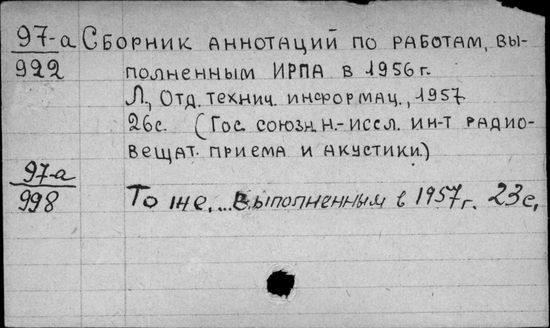 97-а Сборник аннотаций по работам, вы-
922 полненным ИРПА в 1956 г.
Л., Отд. технич. информац., 1957
26с. (Гос. союзн. н.-иссл. ин-т радио-
вещат. приема и акустики.)
97-а
998 То же, ... выполненным в 1957 г. 23с.